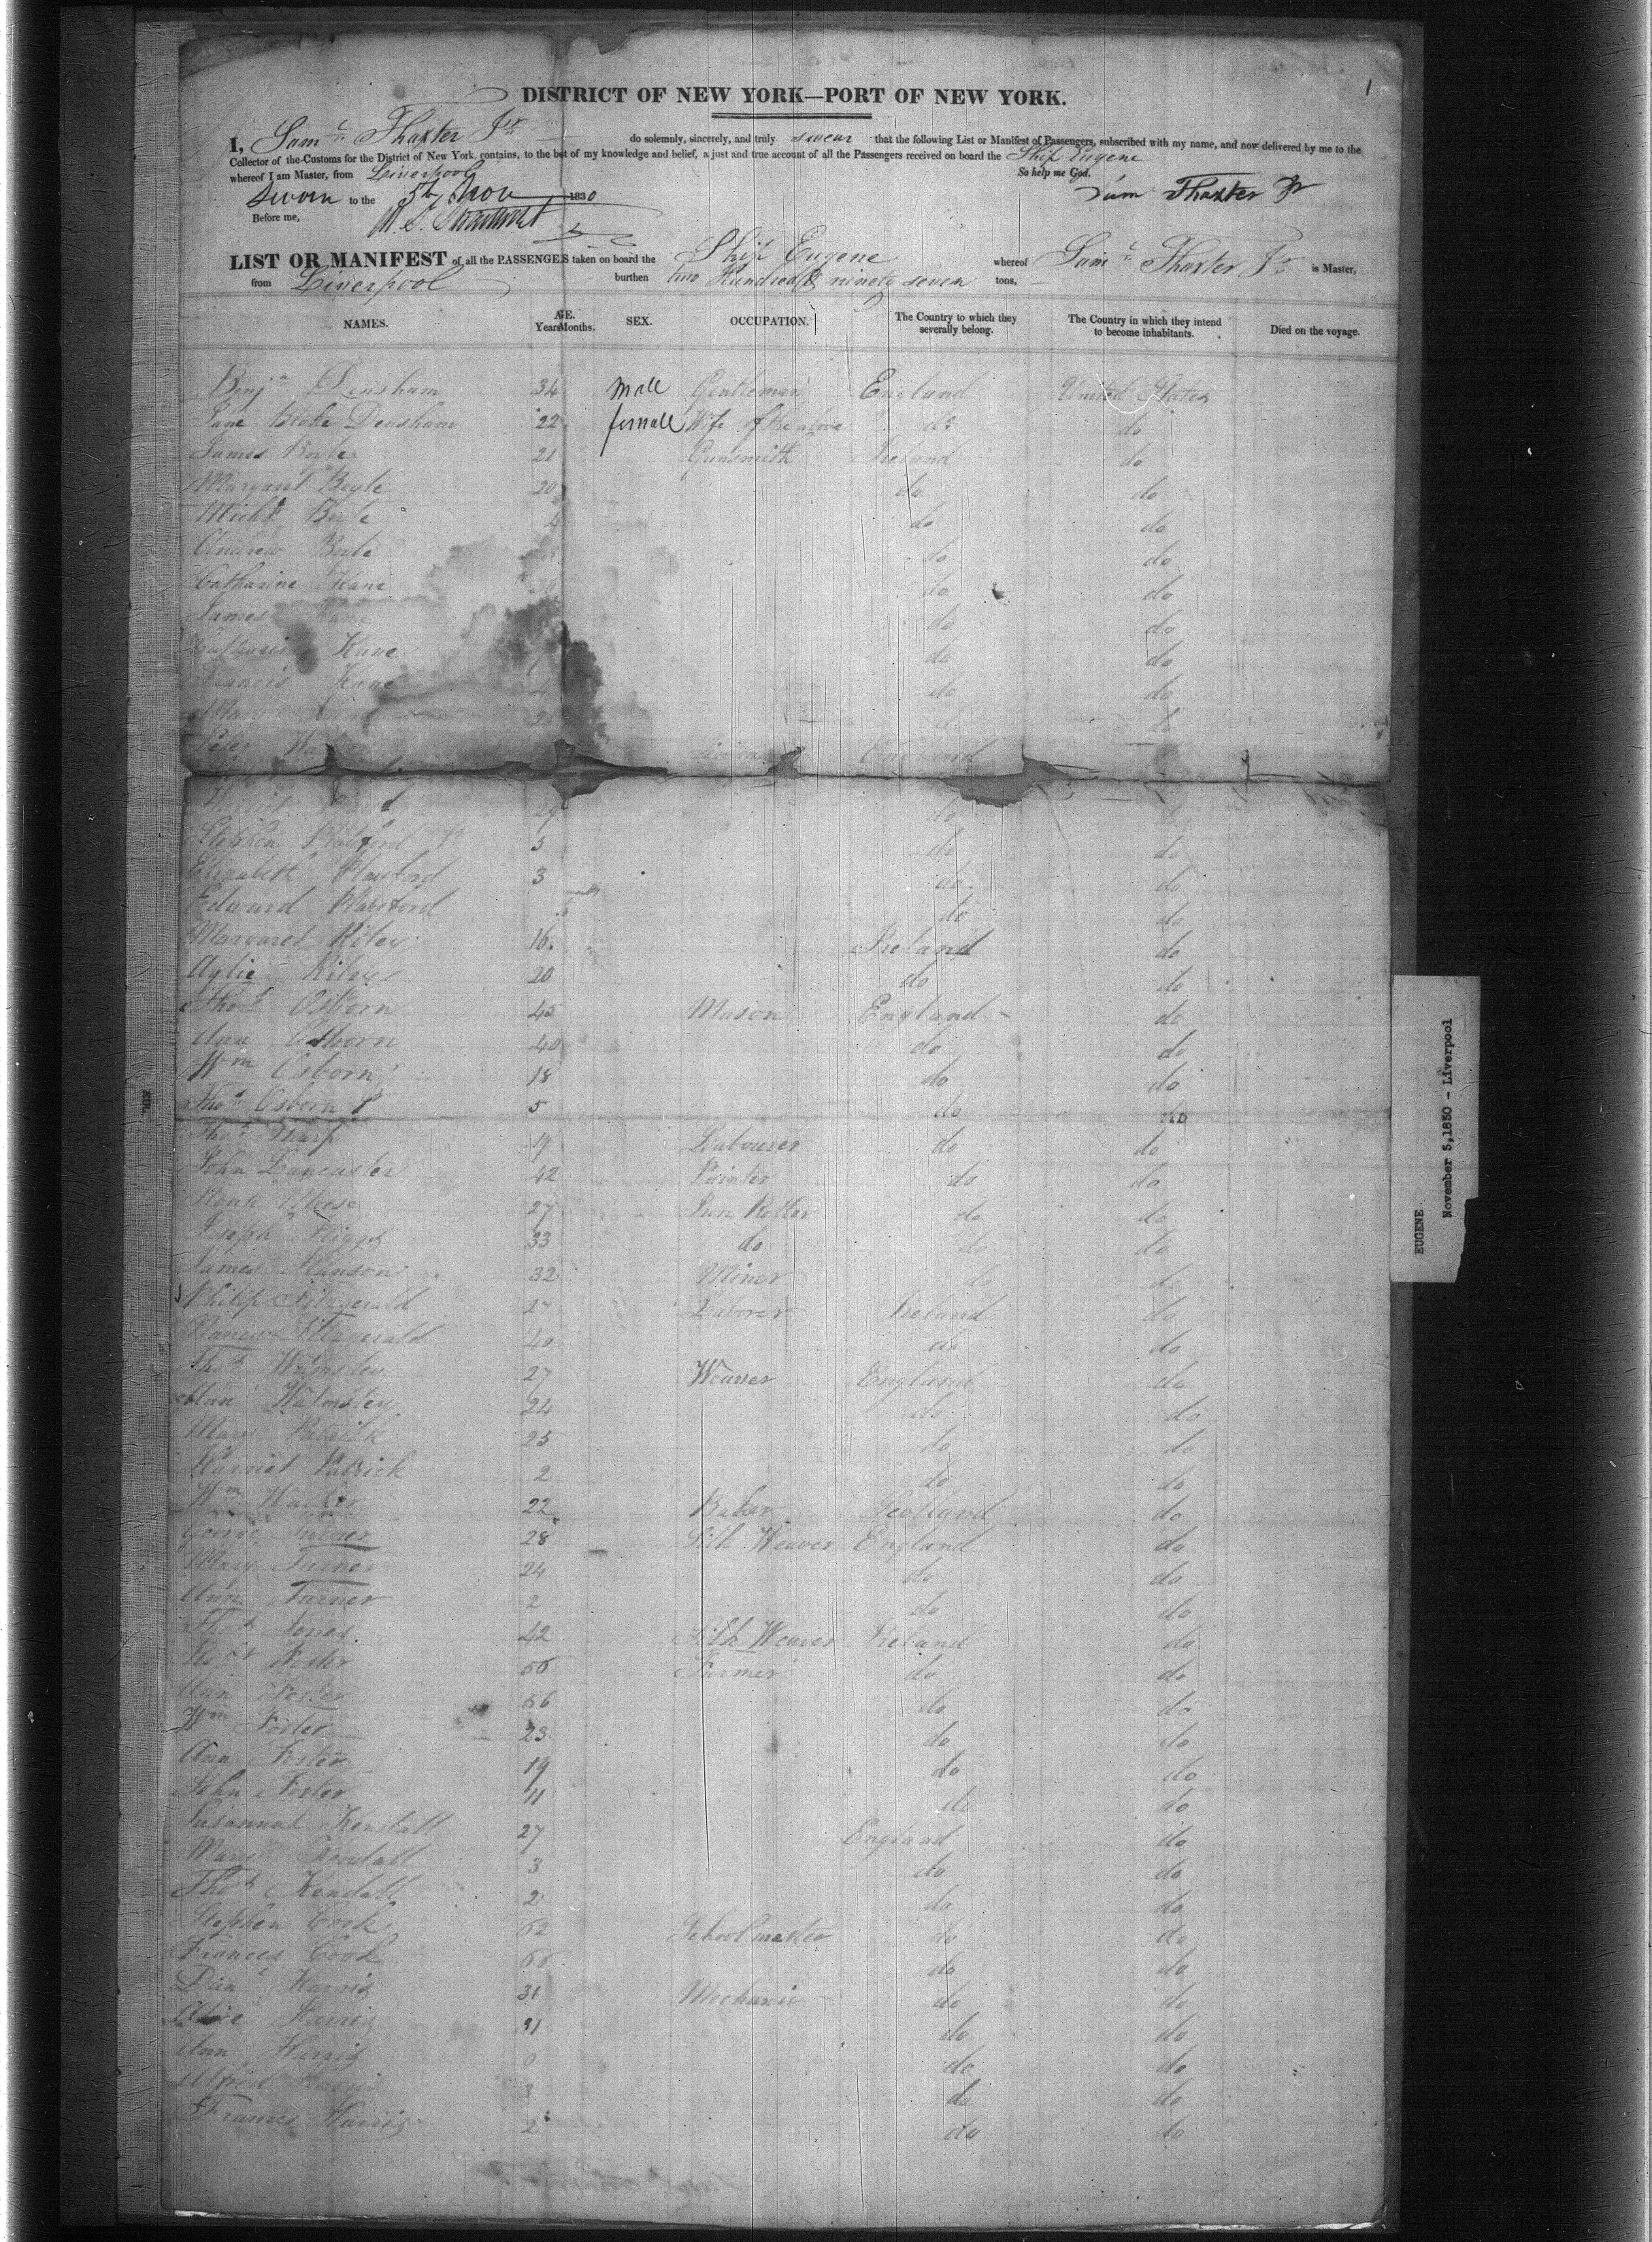 1
DISTRICT OF NEW YORK—PORT OF NEW YORK.
I, Sam^l Thaxter J^r do solemnly, sincerely, and truly swear that the following List or Manifest of Passengers, subscribed with my name, and now delivered by me to the
Collector of the Customs for the District of New York, contains, to the best of my knowledge and belief, a just and true account of all the Passengers received on board the Ship Eugene
whereof I am Master, from Liverpool So help me God.
Sworn to the 5th Nov 1830 Sam Thaxter Jr
Before me,
LIST OR MANIFEST of all the PASSENGERS taken on board the Ship Eugene whereof Sam^l Thaxter J^r is Master,
from Liverpool burthen two Hundred & ninety seven tons,
NAMES. AGE. Years Months. SEX. OCCUPATION. The Country to which they severally belong. The Country in which they intend to become inhabitants. Died on the voyage.
Benj^n Densham 34 Male Gentleman England United States
Jane Blake Densham 22 female Wife of the above do do
James Boyle 21 Gunsmith Ireland do
Margaret Boyle 20 do do
Mich^l Boyle 4 do do
Andrew Boyle do do
Catharine Kane do do
James Kane do do
Catharine Kane do do
Francis Kane 4 do do
Mary do do
Peter England
29 do
Stephen Playford 5 do do
Elizabeth Playford 3 do do
Edward Playford months do do
Margaret Riley 16 Ireland do
Riley 20 do do
Tho^s Osborn 45 Mason England do
Ann Osborn 40 do do
W^m Osborn 18 do do
Tho^s Osborn 5 do do
Tho^s Sharp 19 Labourer do do
John Lancaster 42 Painter do do
Noah 27 do do
Joseph 33 do do do
James Hanson 32 Miner do do
Philip Fitzgerald 27 Laborer Ireland do
Nancy Fitzgerald 40 do do
Tho^s Walmsley 27 Weaver England do
Ann Walmsley 24 do do
Mary Patrick 25 do do
Harriet Patrick 2 do do
W^m Walker 22 Baker Scotland do
George Turner 28 Silk Weaver England do
Mary Turner 24 do do
Ann Turner 2 do do
Tho^s Jones 42 Silk Weaver Ireland do
Rob^t Foster 56 Farmer do do
Ann Foster 56 do do
W^m Foster 23 do do
Ann Foster 19 do do
John Foster 11 do do
Susannah Kendall 27 England do
Mary Kendall 3 do do
Tho^s Kendall 2 do do
Stephen Cook 62 School master do do
Frances Cook 66 do do
Dan^l Harris 31 Mechanic do do
Alice Harris do do
Ann Harris do do
Alfred Harris 3 do do
Frances Harris 2 do do
EUGENE
November 5,1830 - Liverpool